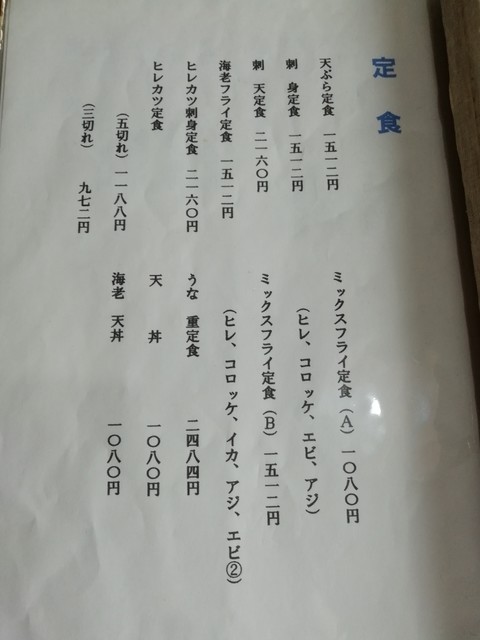 定食
天ぷら定食 一五一二円
刺 身定食 一五一二円
刺 天定食 二一六〇円
海老フライ定食 一五一二円
ヒレカツ刺身定食 二一六〇円
ヒレカツ定食
（五切れ）一一八八円
（三切れ） 九七二円
ミックスフライ定食（A）一〇八〇円
（ヒレ、コロッケ、エビ、アジ）
ミックスフライ定食（B）一五一二円
（ヒレ、コロッケ、イカ、アジ、エビ②）
うな 重定食 二四八四円
天 丼 一〇八〇円
海老 天丼 一〇八〇円